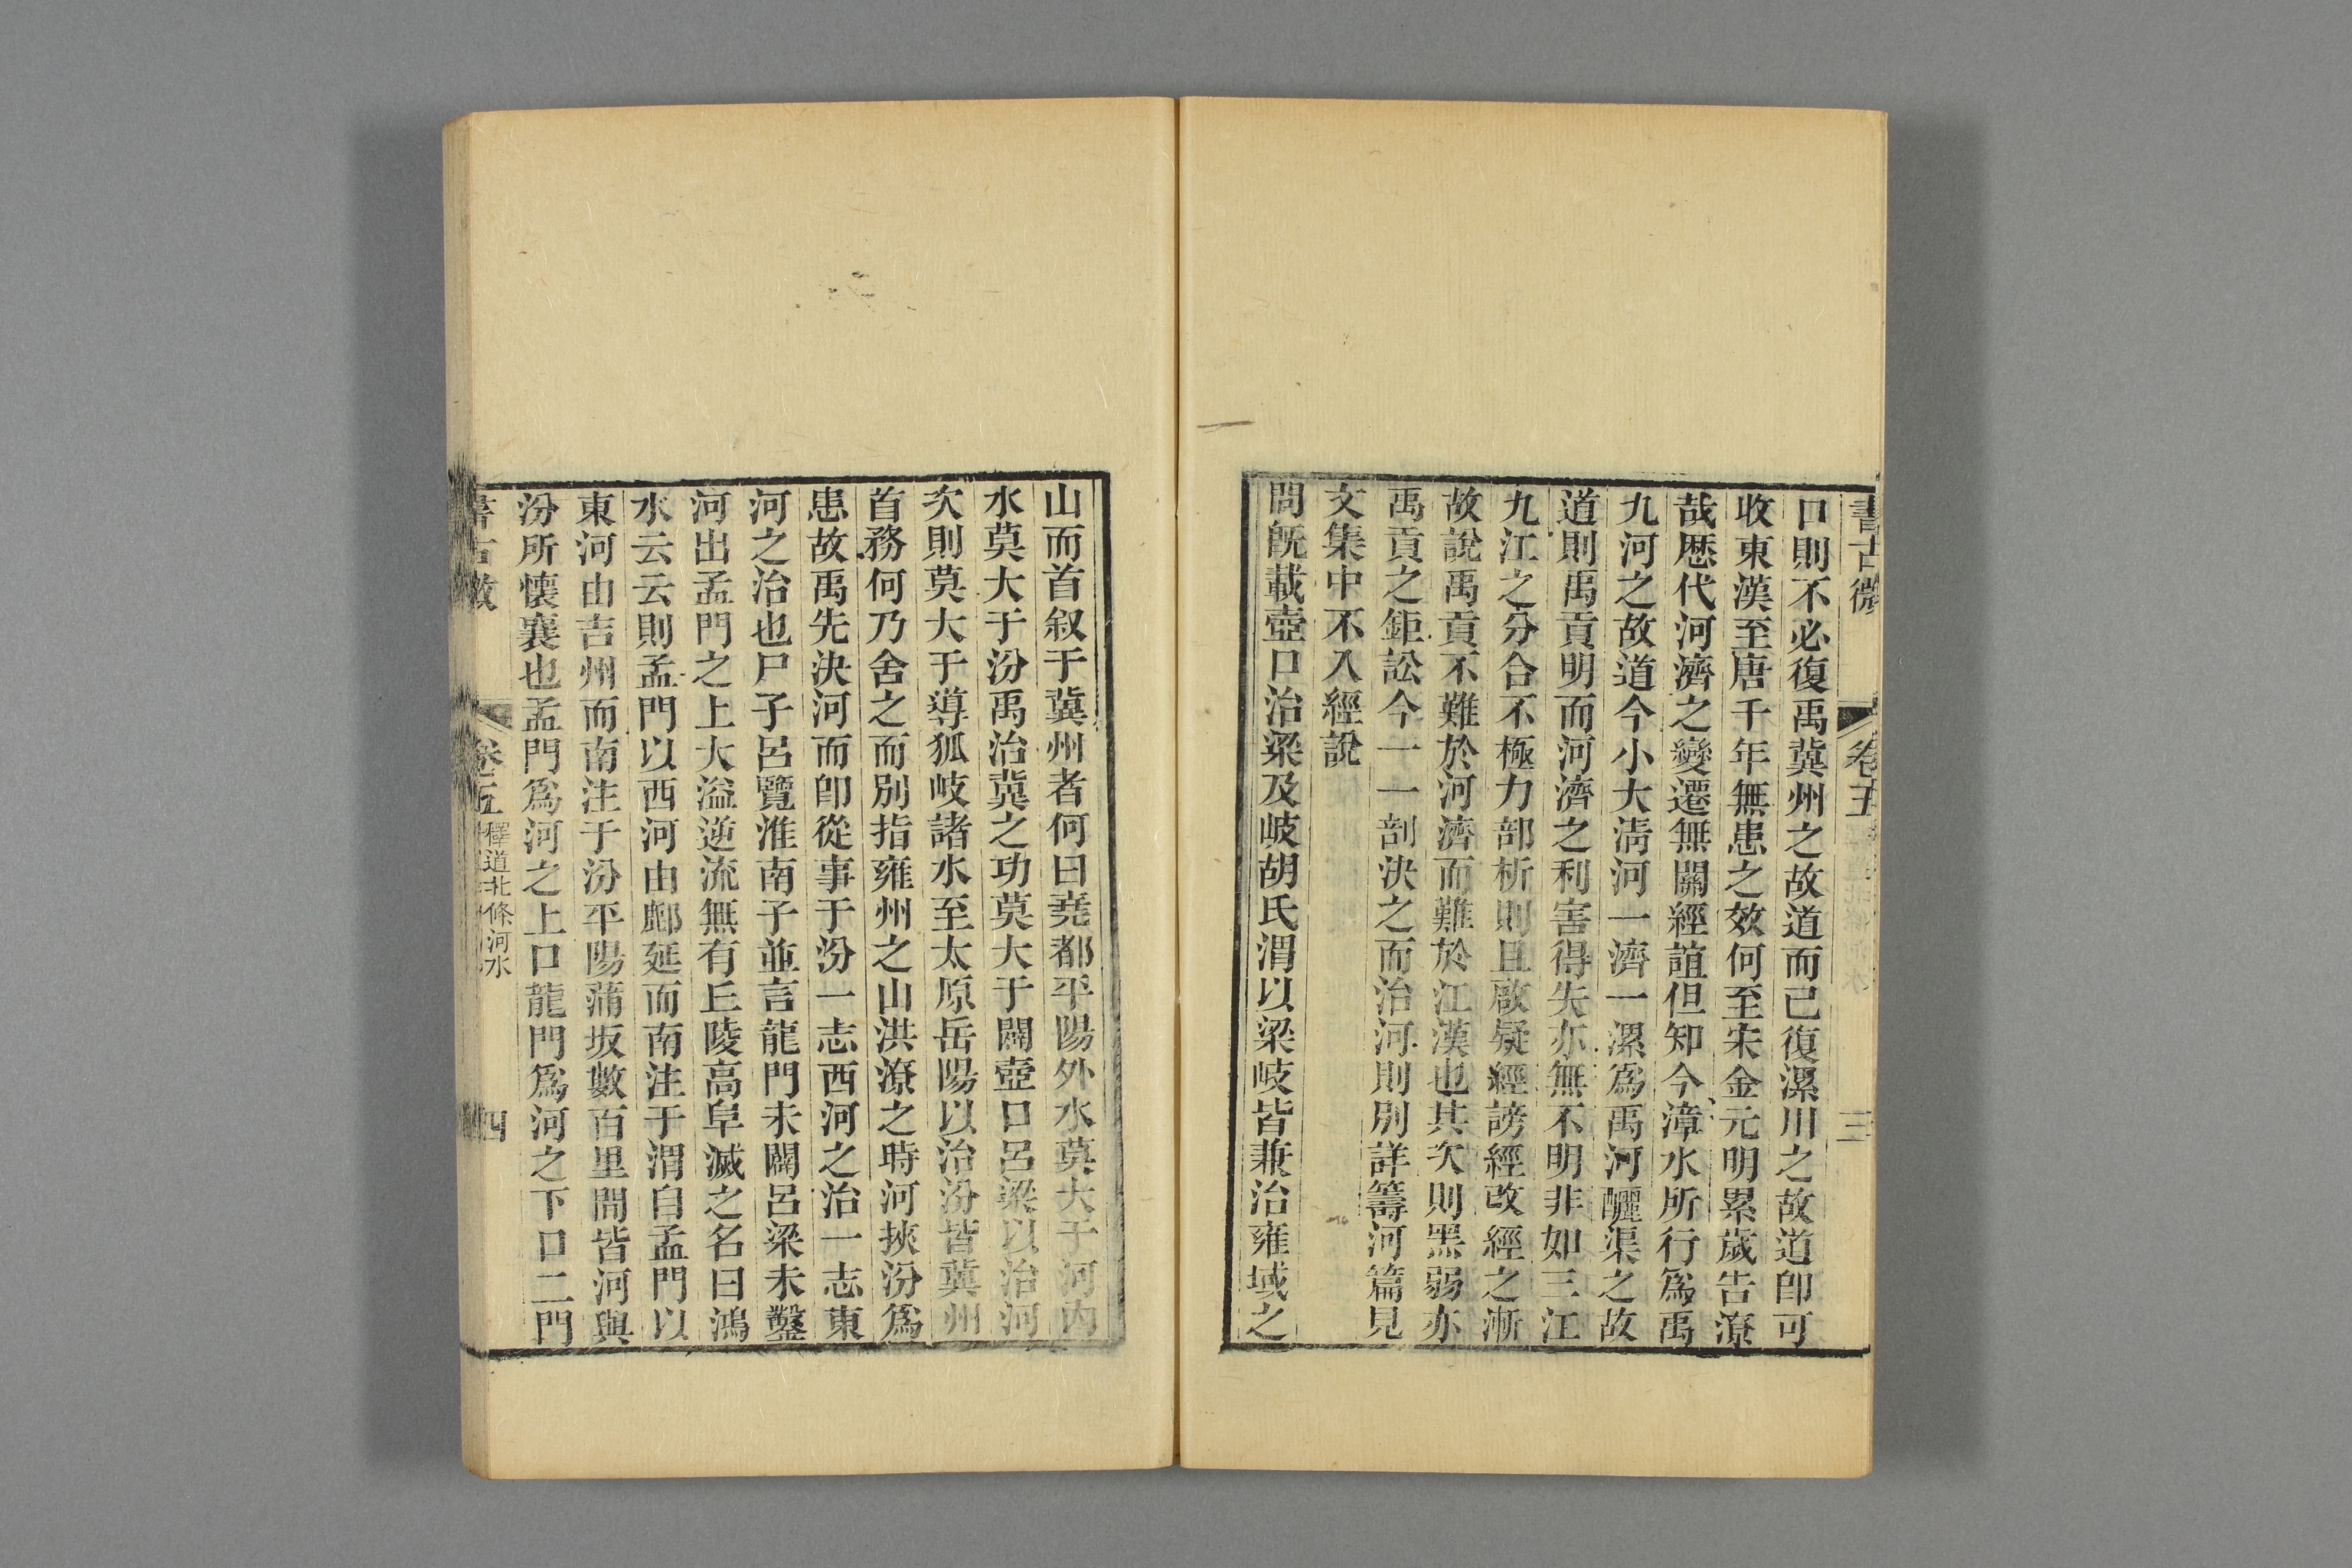 書古微 卷五 三
口則不必復禹冀州之故道而已復漯川之故道卽可
收東漢至唐千年無患之效何至宋金元明累歲告潦
哉歷代河濟之變遷無關經誼但知今漳水所行爲禹
九河之故道今小大淸河一濟一漯爲禹河釃渠之故
道則禹貢明而河濟之利害得失亦無不明非如三江
九江之分合不極力部析則且啟疑經謗經改經之漸
故說禹貢不難於河濟而難於江漢也其次則黑弱亦
禹貢之鉅訟今一一剖決之而治河則別詳籌河篇見
文集中不入經說
問旣載壺口治梁及岐胡氏渭以梁岐皆兼治雍域之
山而首叙于冀州者何曰堯都平陽外水莫大于河內
水莫大于汾禹治冀之功莫大于闢壺口呂梁以治河
次則莫大于導狐岐諸水至太原岳陽以治汾皆冀州
首務何乃舍之而別指雍州之山洪潦之時河挾汾爲
患故禹先決河而卽從事于汾一志西河之治一志東
河之治也尸子呂覽淮南子並言龍門未闢呂梁未鑿
河出孟門之上大溢逆流無有丘陵高阜滅之名曰鴻
水云云則孟門以西河由鄜延而南注于渭自孟門以
東河由吉州而南注于汾平陽蒲坂數百里閒皆河與
汾所懷襄也孟門爲河之上口龍門爲河之下口二門
書古微 卷五 釋道北條河水 四